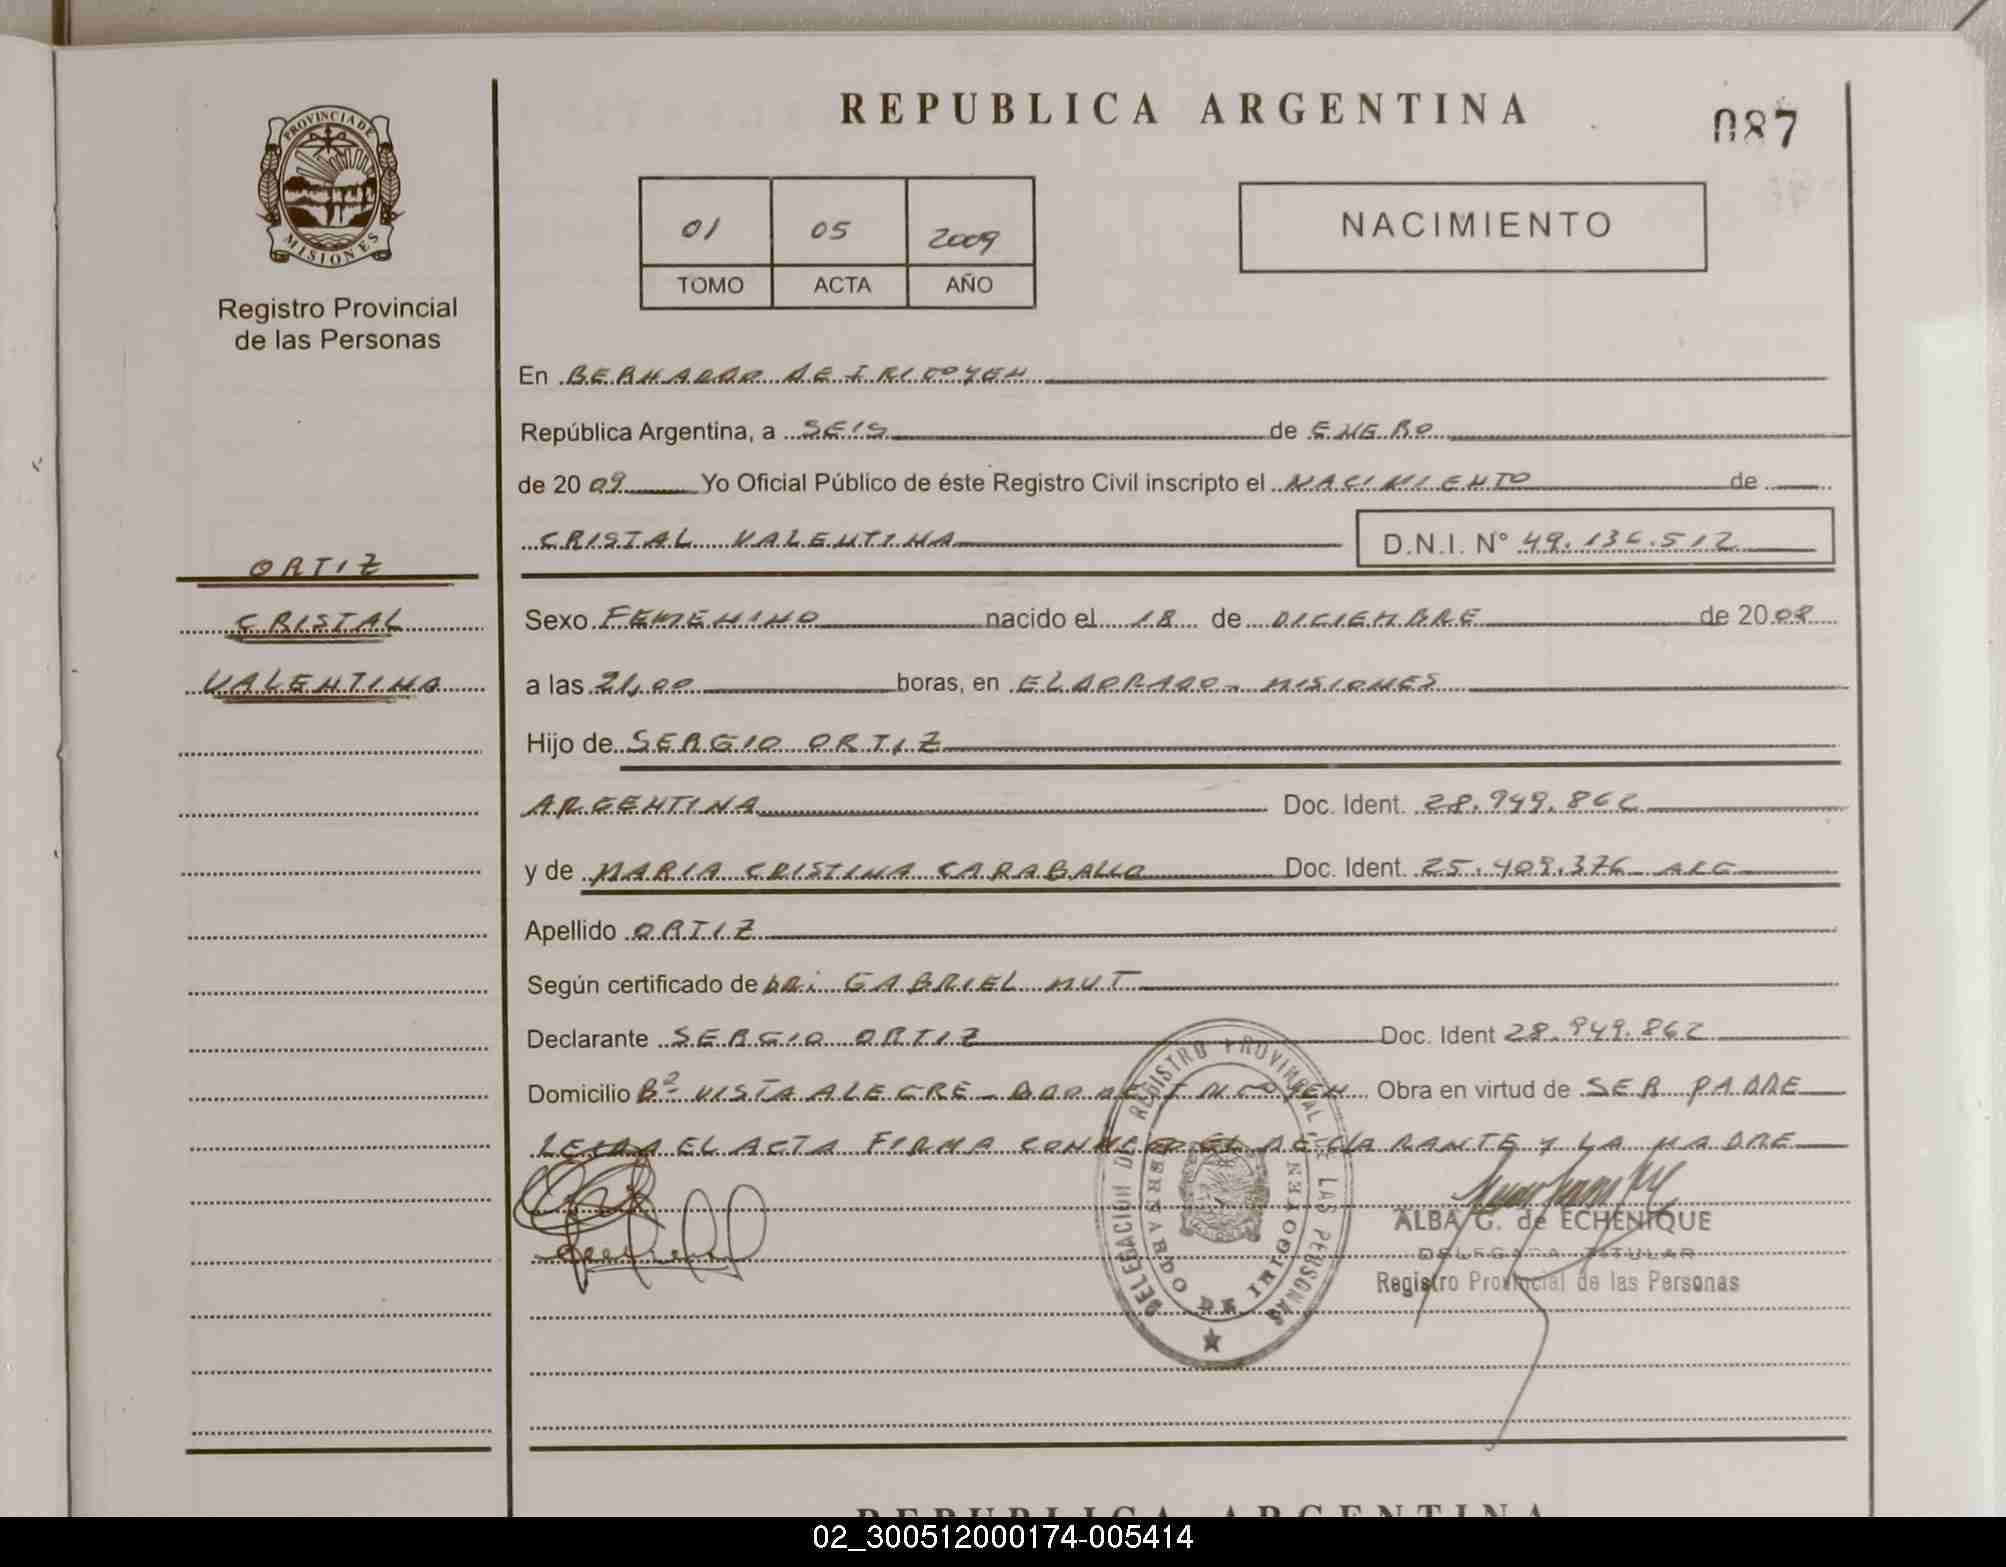 REPUBLICA ARGENTINA
087
PROVINCIA DE MISIONES
Registro Provincial
de las Personas
01 05 2009
TOMO ACTA AÑO
NACIMIENTO
En BERNARDO DE IRIGOYEN
República Argentina, a SEIS de ENERO
de 20 09 Yo Oficial Público de éste Registro Civil inscripto el NACIMIENTO de
CRISTAL VALENTINA D.N.I. N° 49.136.512
ORTIZ
CRISTAL
VALENTINA
Sexo FEMENINO nacido el 18 de DICIEMBRE de 20 08
a las 21,00 horas, en ELDORADO - MISIONES
Hijo de SERGIO ORTIZ
ARGENTINA Doc. Ident. 28.949.862
y de MARIA CRISTINA CARABALLO Doc. Ident. 25.409.376 ARG
Apellido ORTIZ
Según certificado de GABRIEL MUT
Declarante SERGIO ORTIZ Doc. Ident 28.949.862
Domicilio Bº VISTA ALEGRE - BDO DE IRIGOYEN Obra en virtud de SER PADRE
LEIDA EL ACTA FIRMA CONMIGO EL DECLARANTE Y LA MADRE
DELEGACION DE REGISTRO PROVINCIAL DE LAS PERSONAS
BERNARDO DE IRIGOYEN
ALBA G. de ECHENIQUE
DELEGADA TITULAR
Registro Provincial de las Personas
REPUBLICA ARGENTINA
02_300512000174-005414